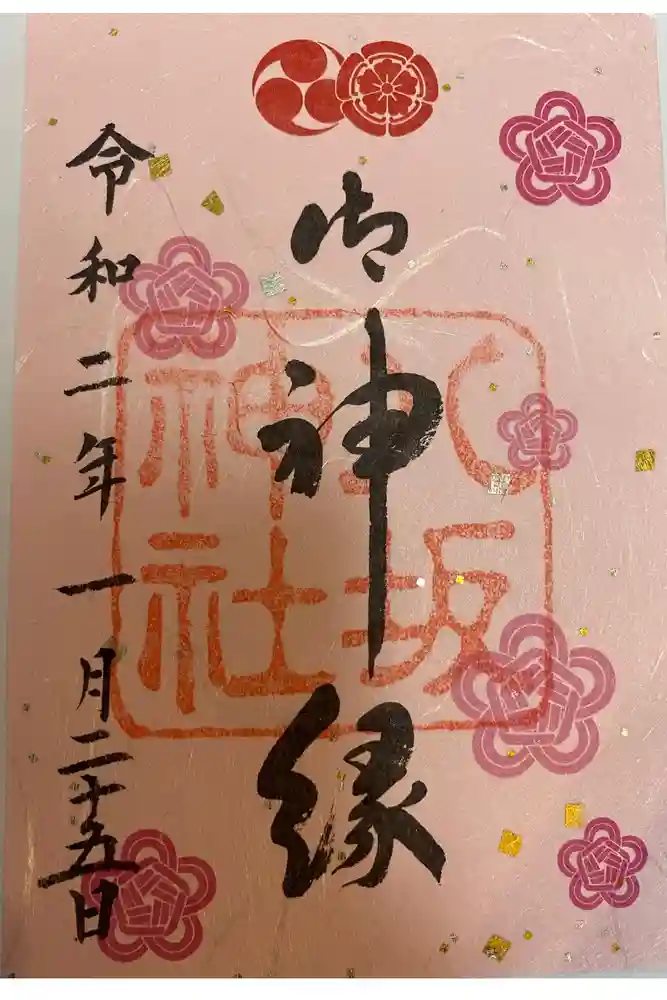 御神縁
八坂
神社
令和二年一月二十五日